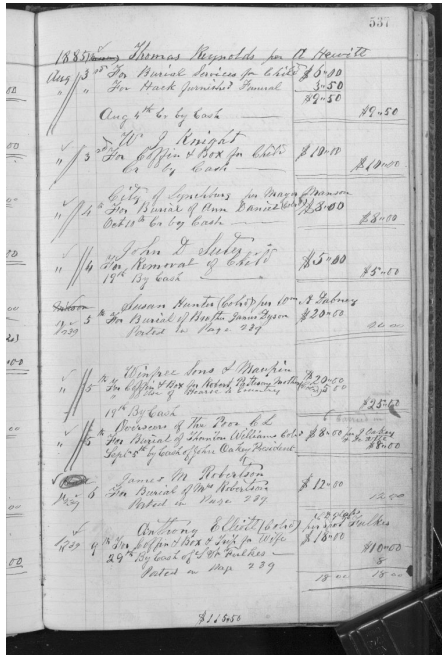 537
1885 Thomas Reynolds per A Hewitt
Aug 3 For Burial Services for Child $6.00
" " For Hack furnished Funeral 3.50
$9.50
Aug 4th Cr by Cash $9.50
W J Knight
" 3 For Coffin & Box for Child $10.00
Cr by Cash $10.00
City of Lynchburg per Mayor Manson
" 4th For Burial of Ann Daniel (Cold) $8.00
Oct 10th Cr by Cash $8.00
John D Suter
" 4 For Removal of Child $5.00
19th By Cash $5.00
Susan Hunter (Cold) per A Dabney
239 5th For Burial of James Dyson $20.00
Posted in Page 239
Winfree Sons & Maupin
" 5th For Coffin & Box for Robert $20.00
" " of Hearse to Country 5.00
19th By Cash $25.00
Overseers of the Poor C L
" 5th For Burial of Thornton Williams Cold $8.00
Sept 5th by Cash of John Oakey President $8.00
James M Robertson
239 6 For Burial of Mrs Robertson $12.00
Posted in Page 239 12.00
Anthony Elliott (Cold) Fulkes
239 9th For Coffin & Box & for Wife $18.00
29th By Cash of Fulkes $10.00
Posted in Page 239 8
18.00 18.00
$115.50